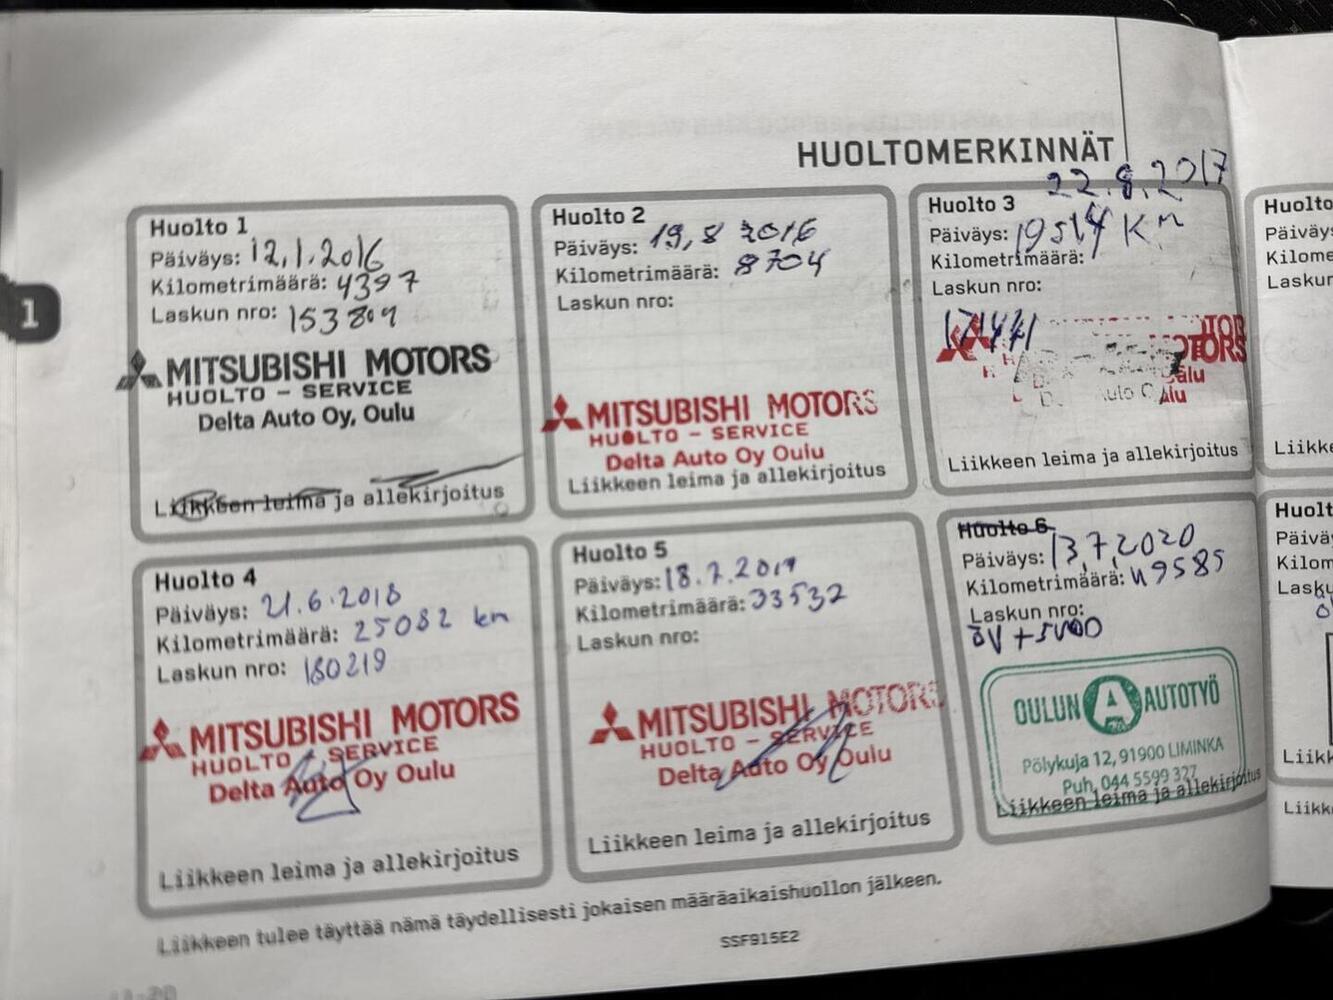 HUOLTOMERKINNÄT
1
Huolto 1
Päiväys: 12.1.2016
Kilometrimäärä: 4397
Laskun nro: 153809
MITSUBISHI MOTORS
HUOLTO - SERVICE
Delta Auto Oy, Oulu
Liikkeen leima ja allekirjoitus
Huolto 2
Päiväys: 19,8 2016
Kilometrimäärä: 8704
Laskun nro:
MITSUBISHI MOTORS
HUOLTO - SERVICE
Delta Auto Oy Oulu
Liikkeen leima ja allekirjoitus
22.8.2017
Huolto 3
Päiväys: 19514 Km
Kilometrimäärä:
Laskun nro:
Liikkeen leima ja allekirjoitus
Huolto 4
Päiväys: 21.6.2018
Kilometrimäärä: 25082 km
Laskun nro: 180219
MITSUBISHI MOTORS
HUOLTO - SERVICE
Delta Auto Oy Oulu
Liikkeen leima ja allekirjoitus
Huolto 5
Päiväys: 18.7.2019
Kilometrimäärä: 33532
Laskun nro:
MITSUBISHI MOTORS
HUOLTO - SERVICE
Delta Auto Oy Oulu
Liikkeen leima ja allekirjoitus
Huolto 6
Päiväys: 13,7,2020
Kilometrimäärä: 49585
Laskun nro:
OULUN A AUTOTYÖ
Pölykuja 12, 91900 LIMINKA
Puh. 044 5599 327
Liikkeen leima ja allekirjoitus
Liikkeen tulee täyttää nämä täydellisesti jokaisen määräaikaishuollon jälkeen.
SSF915E2